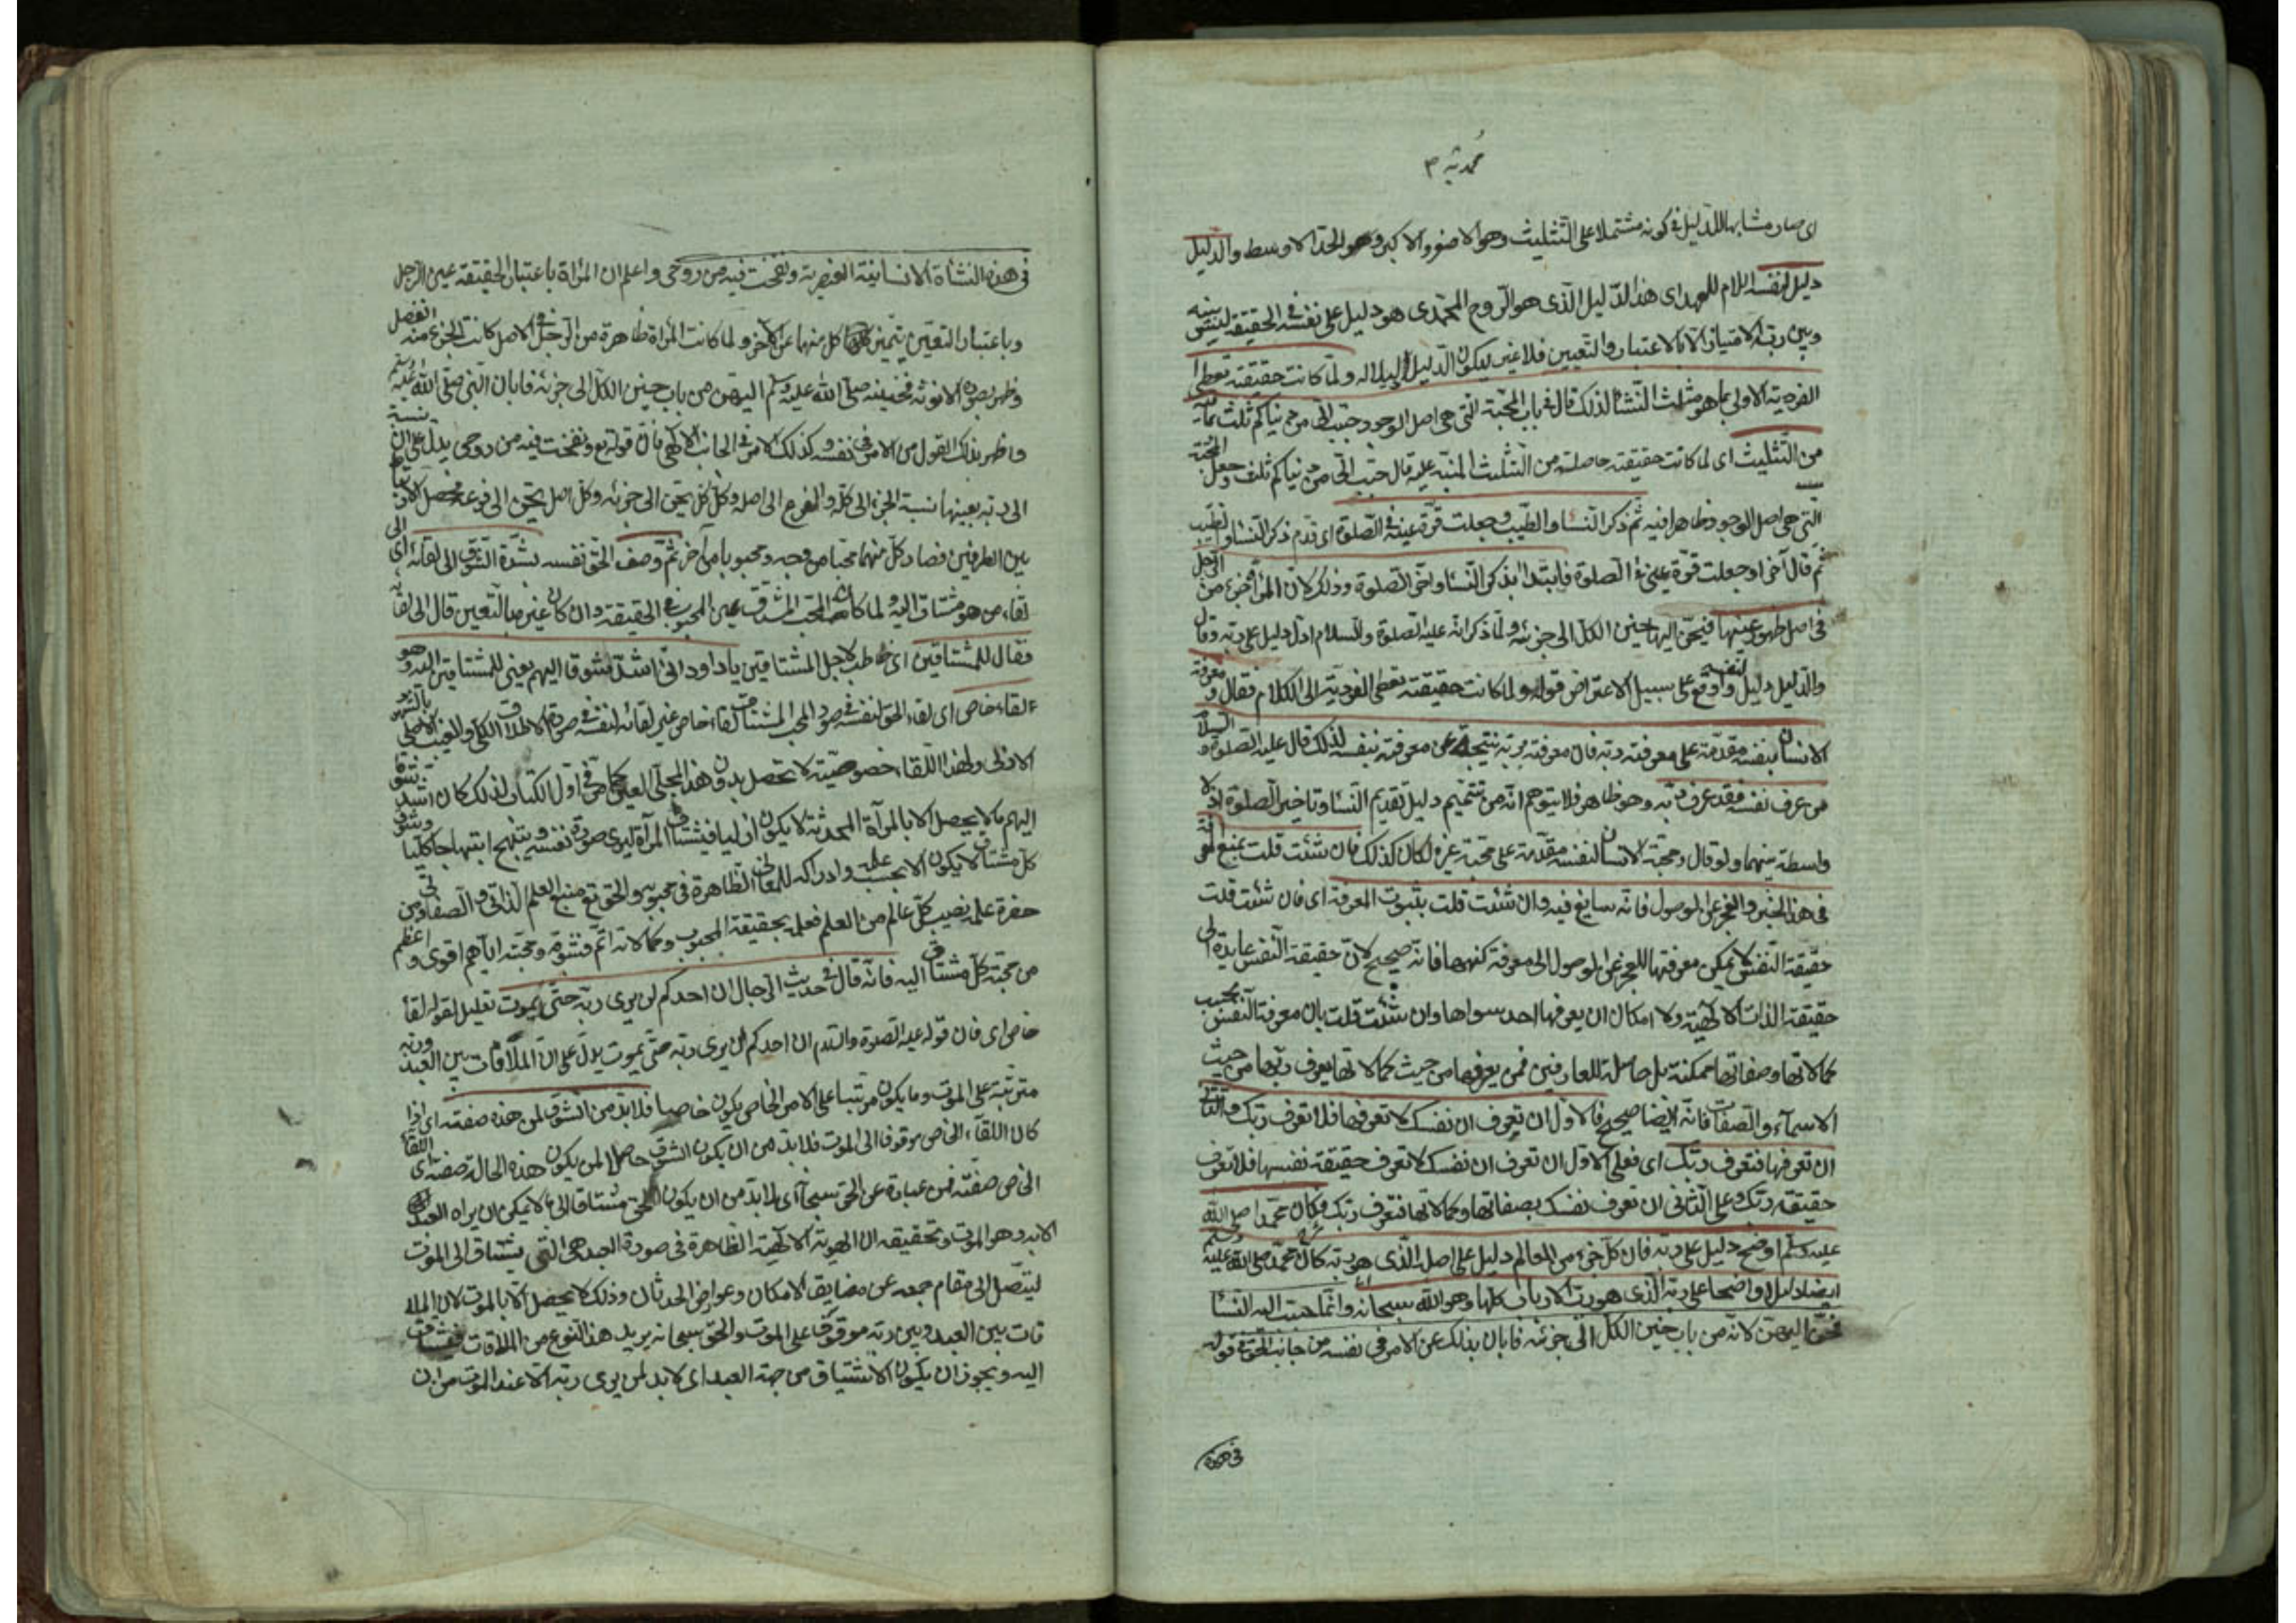 محمدیه ٣
ای صار مشابها للدلیل فی کونه مشتملا علی التثلیث وهو الاصغر والاکبر وهو الحد الاوسط والدلیل
دلیل لنفسه اللام للعهد ای هذا الدلیل الذی هو الروح المحمدی هو دلیل علی نفسه فی الحقیقة لیس بینه
وبین ربه الامتیاز الا بالاعتبار والتعیین فلا غیر لیکون الدلیل دلیلا له ولما کانت حقیقته تعطی
الفردیة الاولی بما هو مثلث النشأ لذلک قال فی باب المحبة التی هی اصل الوجود حبب الی من دنیاکم ثلث بما فیه
من التثلیث ای لما کانت حقیقته حاصلة من التثلیث المنبه علیه قال حبب الی من دنیاکم ثلث وجعل المحبة
التی هی اصل الوجود ظاهرا فیه ثم ذکر النسا والطیب وجعلت قرة عینه فی الصلوة ای قدم ذکر النسا والطیب
ثم قال آخرا وجعلت قرة عینی فی الصلوة فابتدا بذکر النسا واخر الصلوة وذلک لان المرأة جزء من الرجل
فی اصل ظهور عینها فیحن الیها حنین الکل الی جزئه ولما ذکر انه علیه الصلوة والسلام ادل دلیل علی ربه وقال
والدلیل دلیل لنفسه واوقع علی سبیل الاعتراض قوله ولما کانت حقیقته تعطی الفردیة الی الکلام فقال ومعرفة
الانسان بنفسه مقدمة علی معرفته ربه فان معرفته بربه نتیجة عن معرفته بنفسه لذلک قال علیه الصلوة والسلام
من عرف نفسه فقد عرف ربه وهو ظاهر فلا یتوهم انه من تتمیم دلیل تقدیم النسا وتاخیر الصلوة اذ لا
واسطة بینهما ولو قال ومحبة الانسان لنفسه مقدمة علی محبة غیره لکان کذلک فان شئت قلت بمنع المعرفة
فی هذا الخبر والعجز عن الوصول فانه سایغ فیه وان شئت قلت بثبوت المعرفة ای فان شئت قلت
حقیقة النفس لا یمکن معرفتها للعجز عن الوصول الی معرفة کنهها فانه صحیح لان حقیقة النفس عایدة الی
حقیقة الذات الالهیة ولا امکان ان یعرفها احد سواها وان شئت قلت بان معرفة النفس بحسب
کمالاتها وصفاتها ممکنة بل حاصلة للعارفین فمن یعرفها من حیث کمالاتها یعرف ربها من حیث
الاسماء والصفات فانه ایضا صحیح فالاول ان تعرف ان نفسک لا تعرفها فلا تعرف ربک والثانی
ان تعرفها فتعرف ربک ای فعلی الاول ان تعرف ان نفسک لا تعرف حقیقة نفسها فلا تعرف
حقیقة ربک وعلی الثانی ان تعرف نفسک بصفاتها وکمالاتها فتعرف ربک فکان محمد صلی الله
علیه وسلم اوضح دلیل علی ربه فان کل جزء من العالم دلیل علی اصله الذی هو ربه کان محمد صلی الله علیه وسلم
ایضا دلیلا واضحا علی ربه الذی هو رب الارباب کلها وهو الله سبحانه وانما حببت الیه النسا
فحن الیهن لانه من باب حنین الکل الی جزئه فابان بذلک عن الامر فی نفسه من جانب الحق فی قوله
فی هذه
فی هذه النشأة الانسانیة العنصریة ونفخت فیه من روحی واعلم ان المرأة باعتبار الحقیقة عین الرجل
وباعتبار التعین یتمیز کل منهما عن الآخر ولما کانت المرأة ظاهرة من الرجل فی الاصل کانت کالجزء منه انفصل
وظهر بصورة الانوثة فحنینه صلی الله علیه وسلم الیهن من باب حنین الکل الی جزئه فابان النبی صلی الله علیه وسلم
واظهر بذلک القول من الامر فی نفسه وکذلک الامر فی الجانب الالهی فان قوله تع ونفخت فیه من روحی یدل علی ان نسبة
الی ربه بعینها نسبة الجزء الی کله والفرع الی اصله وکل کل یحن الی جزئه وکل اصل یحن الی فرعه فحصل الارتباط
بین الطرفین فصار کل منهما محبا من وجه ومحبوبا من آخر ثم وصف الحق نفسه بشدة الشوق الی لقائه ای الی
لقاء من هو مشتاق الیه ولما کان المحب المشتاق عین المحبوب فی الحقیقة وان کان غیره بالتعین قال الی لقائه
فقال للمشتاقین ای خاطب لاجل المشتاقین یا داود انی اشد شوقا الیهم یعنی للمشتاقین الیه وهو
لقاء خاص ای لقاء الحق لنفسه فی صورة المحب المشتاق لقاء خاص غیر لقائه لنفسه فی صورة الاطلاق الکلی والغیب الاصلی
الازلی ولهذا اللقاء خصوصیة لا تحصل بدون هذا المجلی المعین کما مر فی اول الکتاب لذلک کان اشد شوقا
الیهم بما لا یحصل الا بالمرآة المحدثة لا یکون ازلیا فیشتاق المرآة لیری صورة نفسه ویبتهج ابتهاجا کلیا وشوق
کل مشتاق لا یکون الا بحسب علمه وادراکه للمعانی الظاهرة فی محبوبه والحق تع منبع العلم الذاتی والصفاتی ومن
حضرة علمه نصیب کل عالم من العلم فعلمه بحقیقة المحبوب وکمالاته اتم فشوقه ومحبته ایاهم اقوی واعظم
من محبة کل مشتاق الیه فانه قال فی حدیث الدجال ان احدکم لن یری ربه حتی یموت تعلیل لقوله لقاء
خاص ای فان قوله علیه الصلوة والسلام ان احدکم لن یری ربه حتی یموت یدل علی ان الملاقات بین العبد وربه
مترتبة علی الموت وما یکون مرتبا علی الامر الخاص یکون خاصا فلا بد من الشوق لمن هذه صفته ای اذا
کان اللقاء الخاص موقوفا الی الموت فلا بد من ان یکون الشوق حاصلا لمن یکون هذه الحالة صفته ای اللقاء
الخاص صفته فمن عبارة عن الحق سبحانه ای لا بد من ان یکون الحق مشتاقا الی ما لا یمکن ان یراه العبد
الا به وهو الموت وتحقیقه ان الهویة الالهیة الظاهرة فی صورة العبد هی التی یشتاق الی الموت
لیتصل الی مقام جمعه عن مضایق الامکان وعوارض الحدثان وذلک لا یحصل الا بالموت لان الملا
قات بین العبد وبین ربه موقوف علی الموت والحق سبحانه یرید هذا النوع من الملاقات فیشتاق
الیه ویجوز ان یکون الاشتیاق من جهة العبد ای لا بد لمن یری ربه الا عند الموت من ان